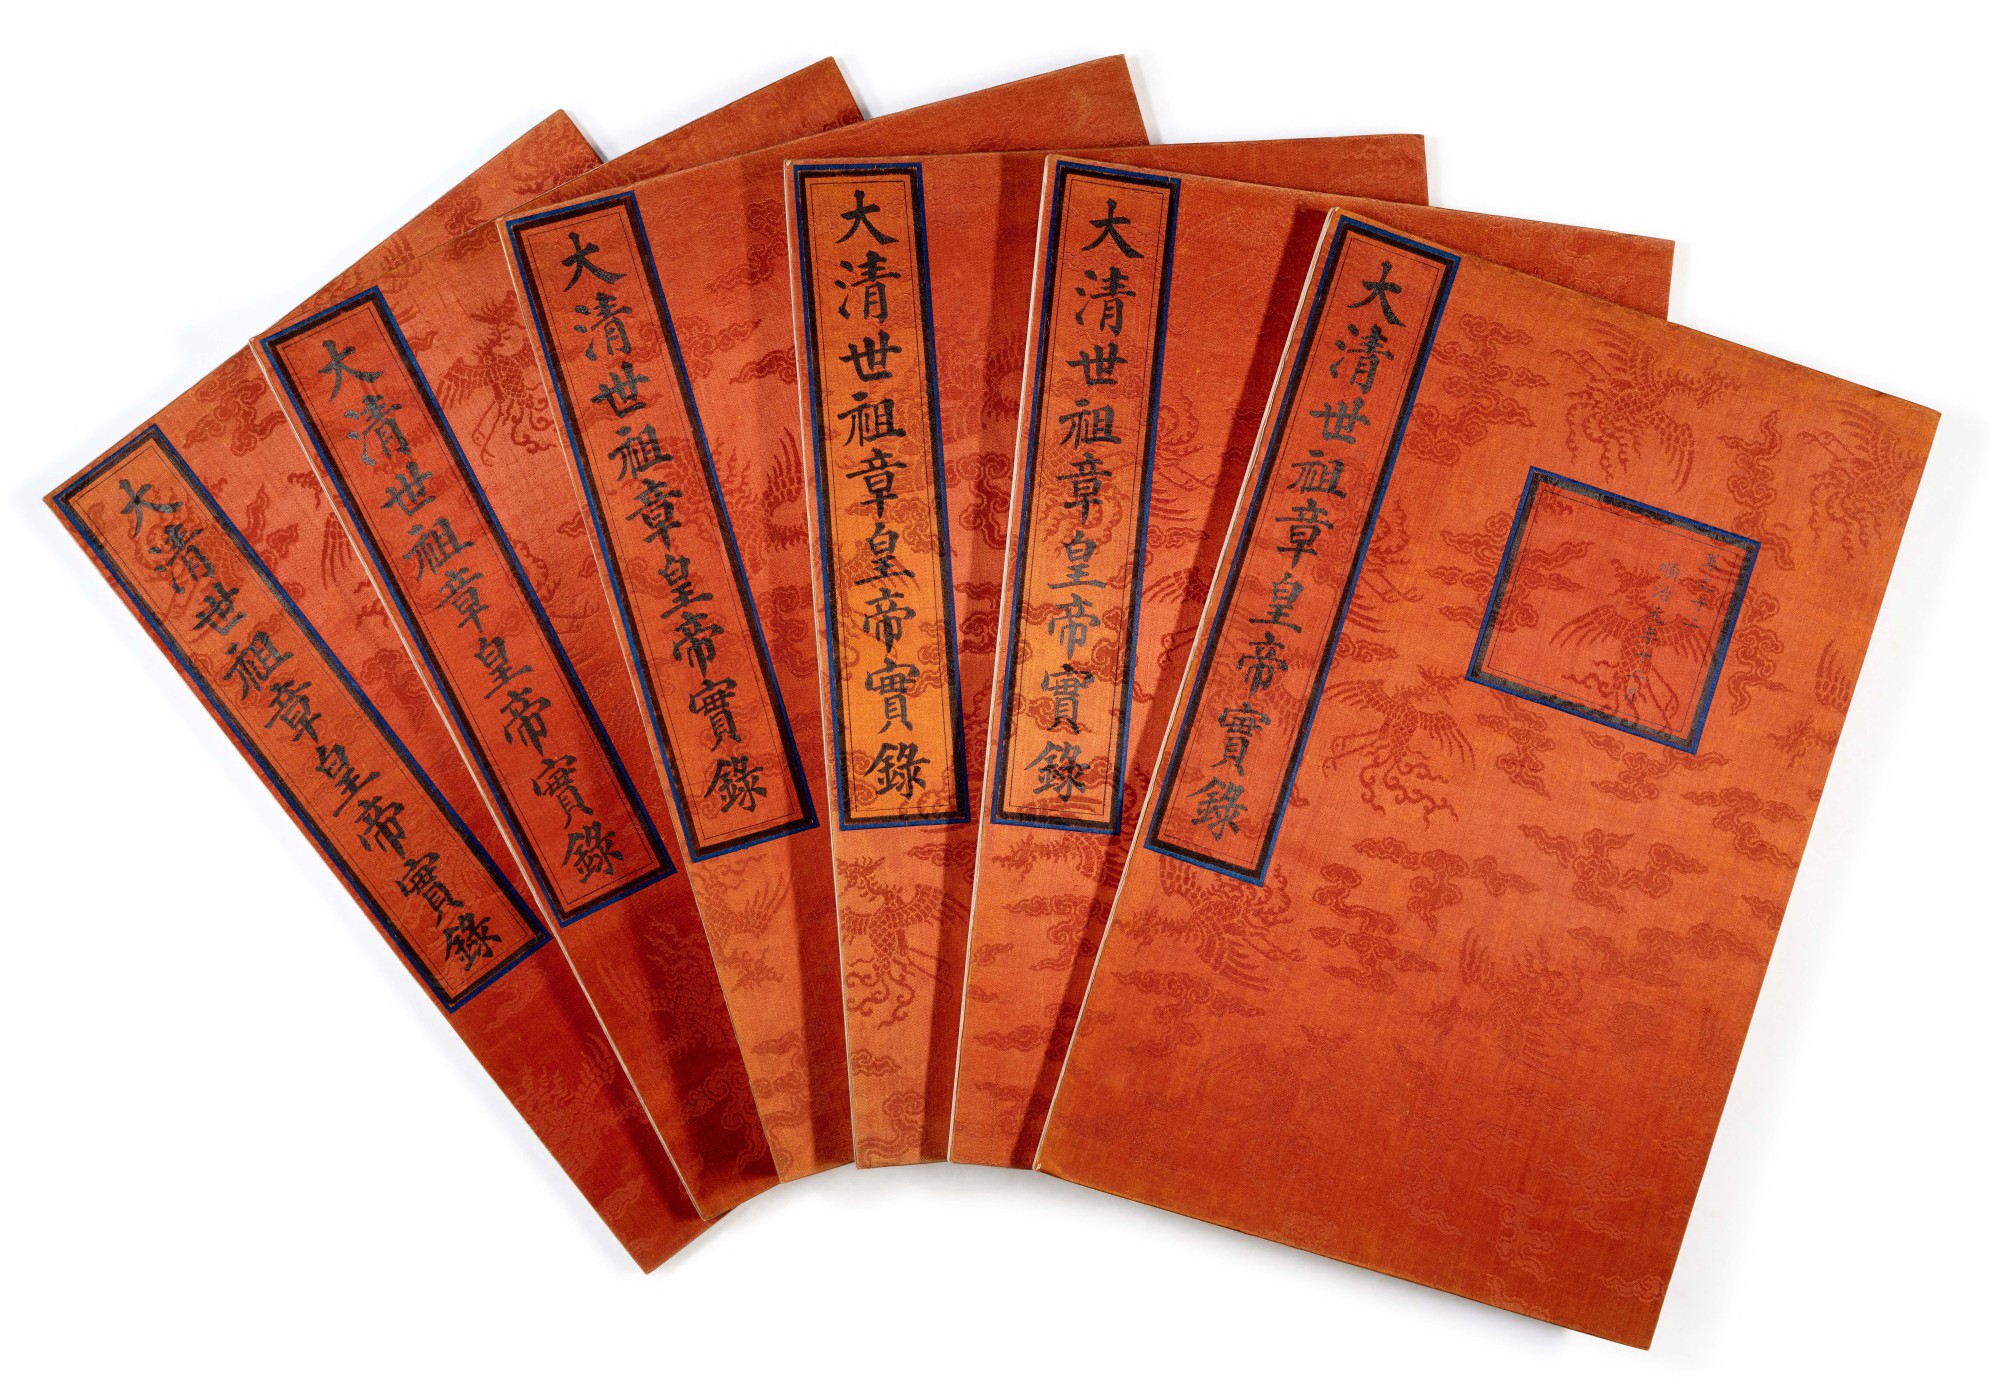 大清世祖章皇帝實錄
大清世祖章皇帝實錄
大清世祖章皇帝實錄
大清世祖章皇帝實錄
大清世祖章皇帝實錄
大清世祖章皇帝實錄
順治